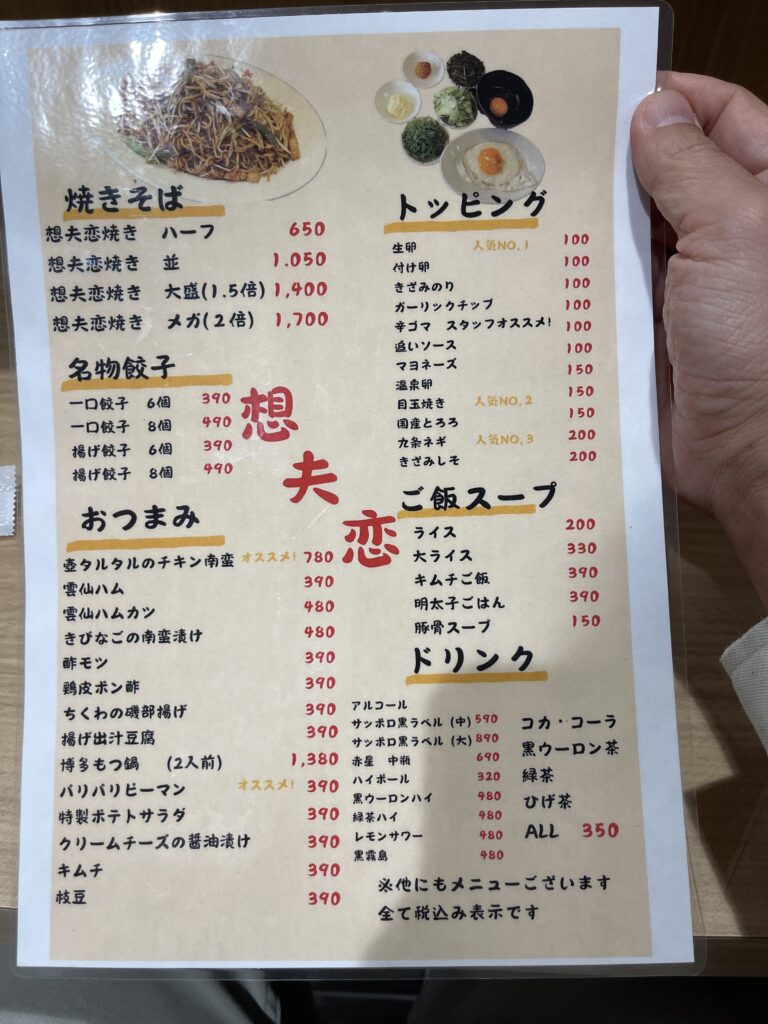 焼きそば
想夫恋焼き ハーフ 650
想夫恋焼き 並 1.050
想夫恋焼き 大盛(1.5倍) 1,400
想夫恋焼き メガ(2倍) 1,700
名物餃子
一口餃子 6個 390
一口餃子 8個 490
揚げ餃子 6個 390
揚げ餃子 8個 490
想夫恋
おつまみ
壺タルタルのチキン南蛮 オススメ! 780
雲仙ハム 390
雲仙ハムカツ 480
きびなごの南蛮漬け 480
酢モツ 390
鶏皮ポン酢 390
ちくわの磯部揚げ 390
揚げ出汁豆腐 390
博多もつ鍋 (2人前) 1,380
パリパリピーマン オススメ! 390
特製ポテトサラダ 390
クリームチーズの醤油漬け 390
キムチ 390
枝豆 390
トッピング
生卵 人気NO,1 100
付け卵 100
きざみのり 100
ガーリックチップ 100
辛ゴマ スタッフオススメ! 100
追いソース 100
マヨネーズ 150
温泉卵 150
目玉焼き 人気NO,2 150
国産とろろ 200
九条ネギ 人気NO,3 200
きざみしそ
ご飯スープ
ライス 200
大ライス 330
キムチご飯 390
明太子ごはん 390
豚骨スープ 150
ドリンク
アルコール
サッポロ黒ラベル (中) 590
サッポロ黒ラベル (大) 890
赤星 中瓶 690
ハイボール 320
黒ウーロンハイ 480
緑茶ハイ 480
レモンサワー 480
黒霧島 480
コカ・コーラ
黒ウーロン茶
緑茶
ひげ茶
ALL 350
※他にもメニューございます
全て税込み表示です